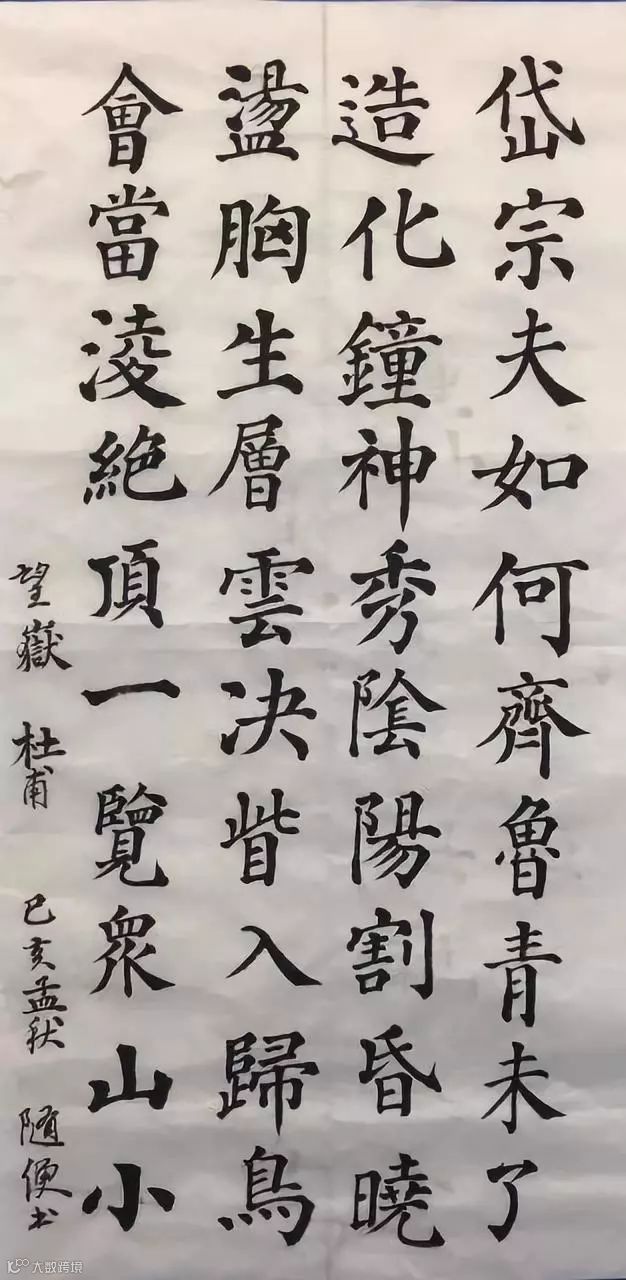 岱宗夫如何齊魯青未了
造化鐘神秀陰陽割昏曉
盪胸生層雲决眥入歸鳥
會當淩絕頂一覽衆山小
望嶽 杜甫 己亥孟秋 随便书
大数跨境